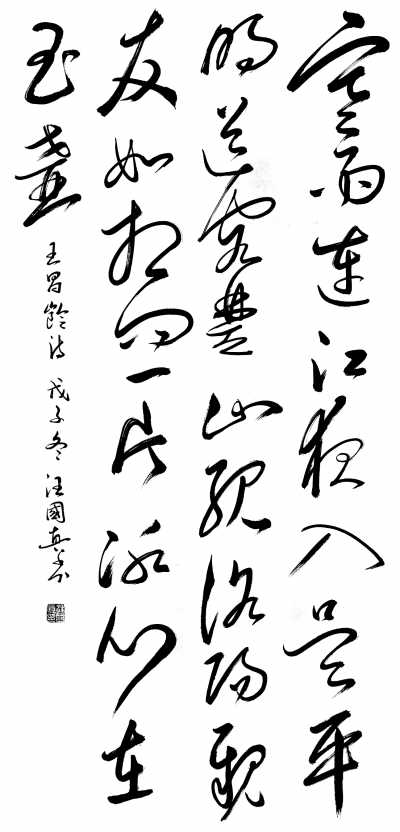 寒雨連江夜入吳平
明送客楚山孤洛陽親
友如相問一片冰心在
玉壺
王昌齡詩 戊子冬 汪國真書